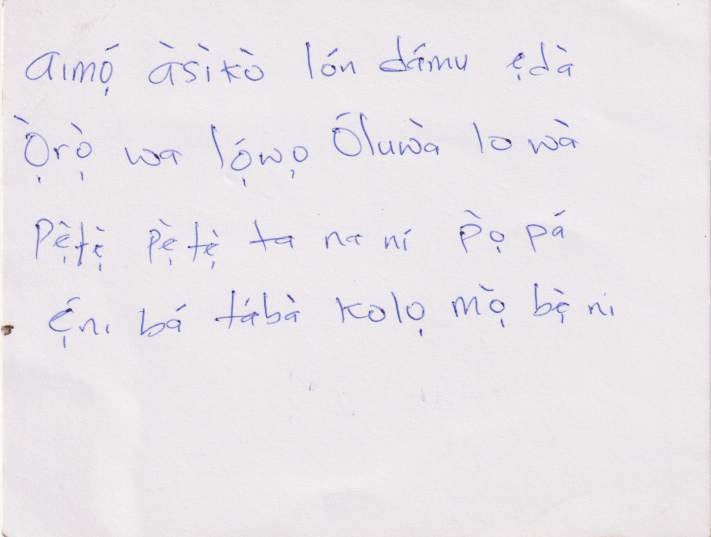 Aımọ́ àsìkò lón dámu ẹdà
Ọ̀rọ̀ wa lọ́wọ Óluwà lo wà
Pẹ̀tẹ̀ pẹ̀tẹ̀ ta na ní pọ̀ pá
Ẹ́nı bá tábà kolọ mọ̀ bẹ̀ ni